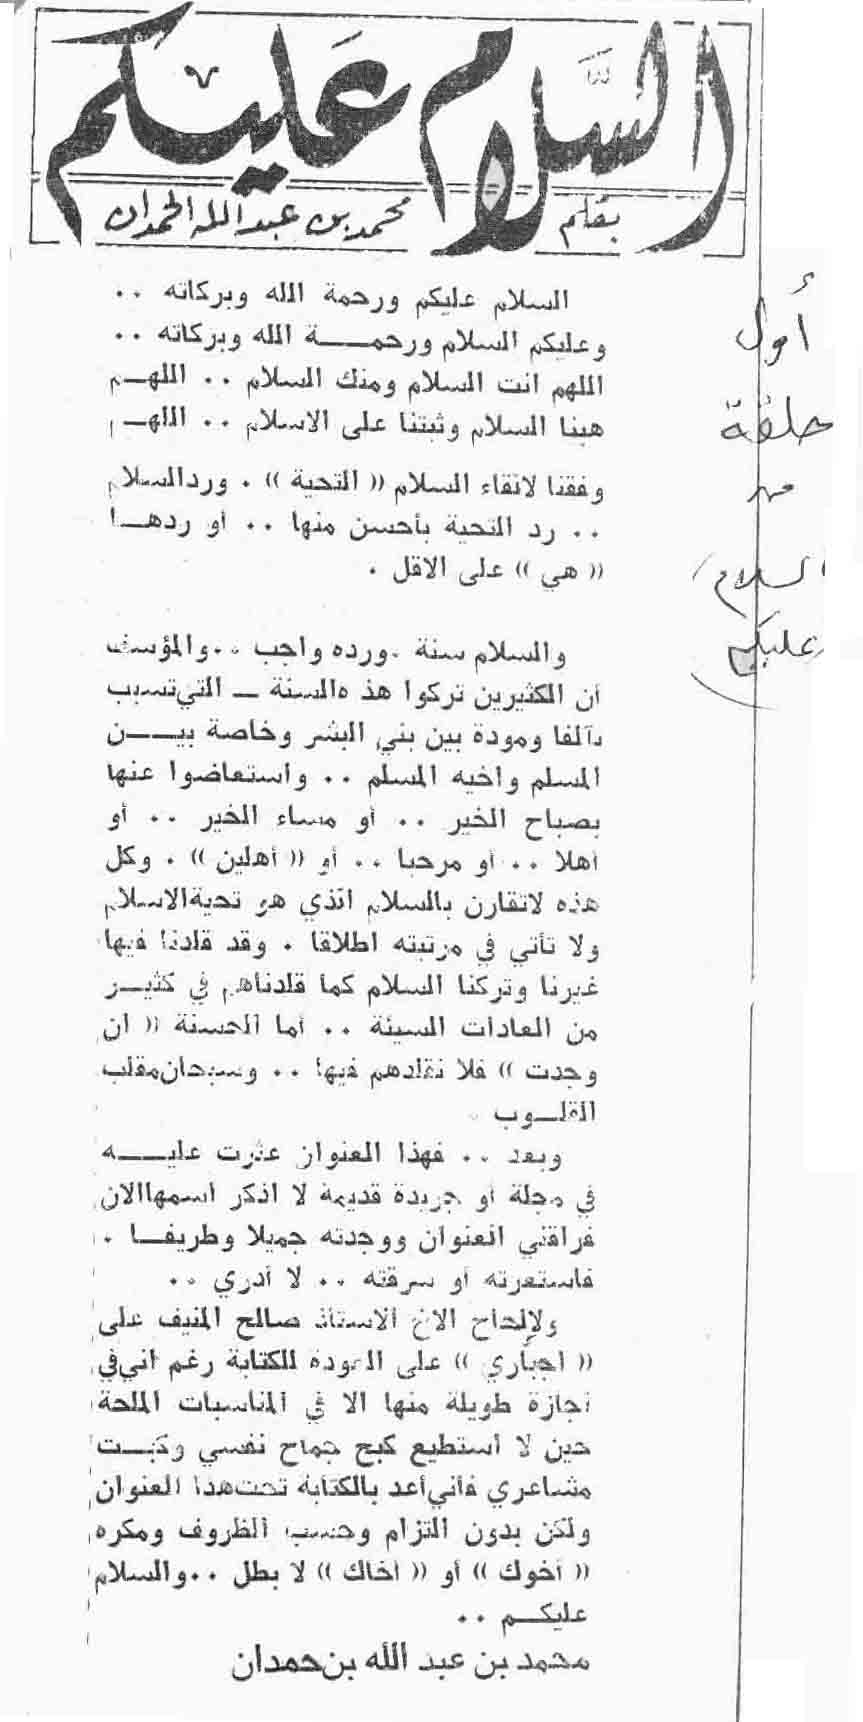 السلام عليكم
بقلم محمد بن عبد الله الحمدان
السلام عليكم ورحمة الله وبركاته ..
وعليكم السلام ورحمـــة الله وبركاته ..
اللهم انت السلام ومنك السلام .. اللهـم
هبنا السلام وثبتنا على الاسلام .. اللهـم
وفقنا لانقاء السلام (( التحية )) . وردالسلام
.. رد التحية بأحسن منها .. أو ردهــا
(( هي )) على الاقل .
والسلام سنة .ورده واجب ..والمؤسف
أن الكثيرين تركوا هذ ه‍السنة ــ التي‌تسبب
تآلفا ومودة بين بني البشر وخاصة بيــن
المسلم واخيه المسلم .. واستعاضوا عنها
بصباح الخير .. أو مساء الخير .. أو
أهلا .. أو مرحبا .. أو (( أهلين )) . وكل
هذه لاتقارن بالسلام الذي هو تحيةالاسلام
ولا تأتي في مرتبته اطلاقا . وقد قلدنا فيها
غيرنا وتركنا السلام كما قلدناهم في كثيـر
من العادات السيئة .. أما الحسنة (( ان
وجدت )) فلا نقلدهم فيها .. وسبحان‌مقلب
القلـوب .
وبعد .. فهذا العنوان عثرت عليـــه
في مجلة أو جريدة قديمة لا اذكر اسمهاالان
فراقني العنوان ووجدته جميلا وطريفـا .
فاستعرته أو سرقته .. لا أدري ..
ولإلحاح الاخ الاستاذ صالح المنيف على
(( اجباري )) على العودة للكتابة رغم اني‌في
اجازة طويلة منها الا في المناسبات الملحة
حين لا أستطيع كبح جماح نفسي وكبـت
مشاعري فأني‌أعد بالكتابة تحت‌هذا العنوان
ولكن بدون التزام وحسب الظروف ومكره
(( أخوك )) أو (( أخاك )) لا بطل ..والسلام
عليكـم ..
محمد بن عبد الله بن‌حمدان
أول
حلقة
من
(السلام
عليكم)